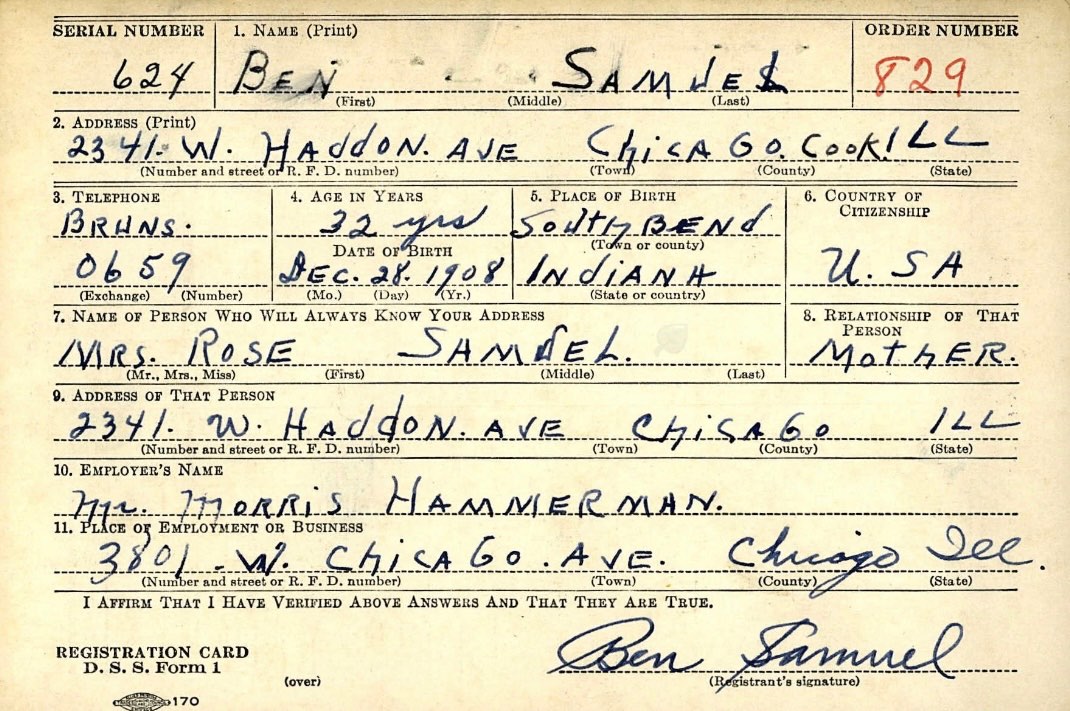 SERIAL NUMBER 1. NAME (Print) ORDER NUMBER
624 BEN SAMUEL 829
(First) (Middle) (Last)
2. ADDRESS (Print)
2341. W. HADDON. AVE CHICAGO. COOK. ILL
(Number and street or R. F. D. number) (Town) (County) (State)
3. TELEPHONE 4. AGE IN YEARS 5. PLACE OF BIRTH 6. COUNTRY OF CITIZENSHIP
BRUNS. 32 yrs SOUTH BEND
DATE OF BIRTH (Town or county)
0659 DEC. 28. 1908 INDIANA U. SA
(Exchange) (Number) (Mo.) (Day) (Yr.) (State or country)
7. NAME OF PERSON WHO WILL ALWAYS KNOW YOUR ADDRESS 8. RELATIONSHIP OF THAT PERSON
MRS. ROSE SAMUEL. MOTHER.
(Mr., Mrs., Miss) (First) (Middle) (Last)
9. ADDRESS OF THAT PERSON
2341. W. HADDON. AVE CHICAGO ILL
(Number and street or R. F. D. number) (Town) (County) (State)
10. EMPLOYER'S NAME
Mr. MORRIS HAMMERMAN.
11. PLACE OF EMPLOYMENT OR BUSINESS
3801 - W. CHICAGO. AVE. Chicago Ill.
(Number and street or R. F. D. number) (Town) (County) (State)
I AFFIRM THAT I HAVE VERIFIED ABOVE ANSWERS AND THAT THEY ARE TRUE.
REGISTRATION CARD
D. S. S. Form 1 Ben Samuel
(over) (Registrant's signature)
170